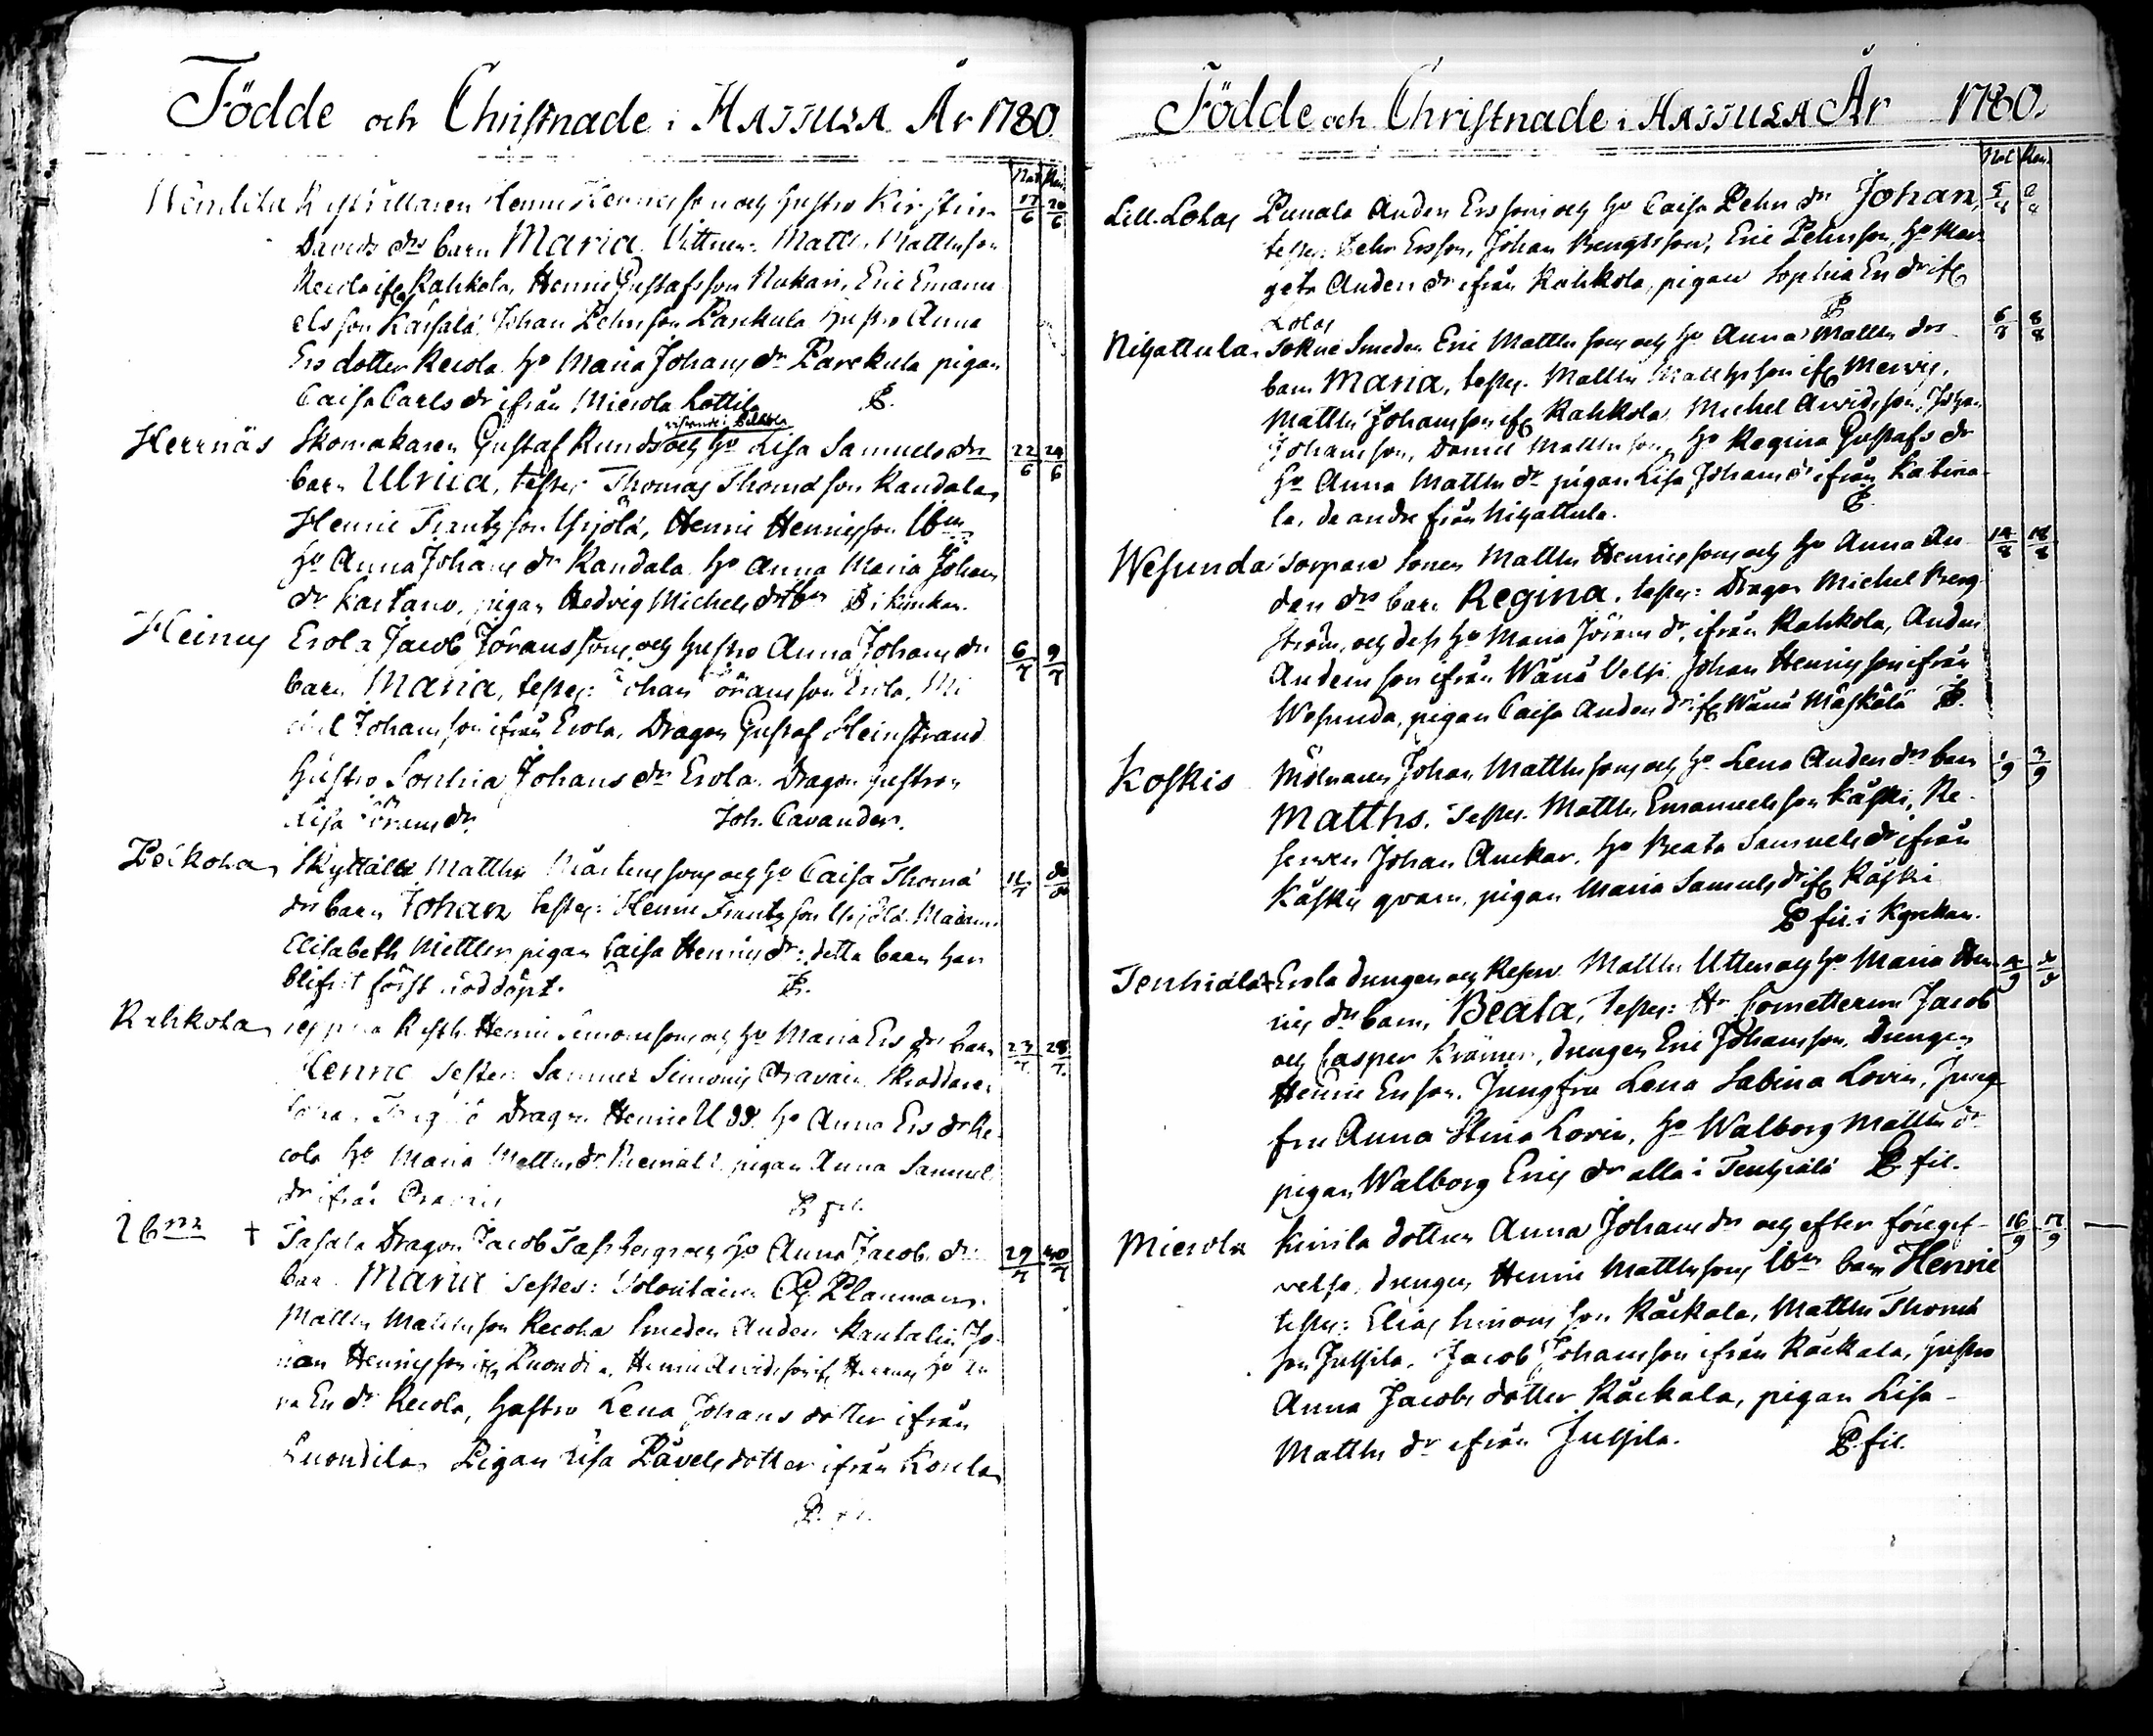 Födde och Christnade i HAJJULA År 1780.
Nat. Ren.
Henric Henricsson och hustro Kirstin 17/6 20/6
Davids dr barn Maria. Vittnen: Matths Matthsson
Recola ifr. Rahkola, Henric Gustafsson Nukari, Eric Emanu
elsson Kaisala, Johan Pehrsson Parekula hustro Anna
Ersdotter Recola. ho Maria Johans dr Parekula pigan
Caisa Carls dr ifrån Mierola Lottila P.
Herrnäs Skomakaren Gustaf Runds och ho Lisa Samuels drs 22/6 24/6
barn Ulrica, testes Thomas Thomasson Kandala
Henric Frantzson Yrjölä, Henric Henricsson Ibm
ho Anna Johans dr Kandala ho Anna Maria Johans
dr Kartano, pigan Hedvig Michels dr Ibm P. i kyrckan.
Heinus Erola Jacob Jöransson och hustro Anna Johans drs 6/7 9/7
barn Maria, testes: Johan Jöransson Erola, Mi
chel Johansson ifrån Erola, Dragon Gustaf Heinstrand
hustro Sophia Johans dr Erola. Dragon hustron
Lisa Jörans dr. Joh. Cavander.
Peikola Matths Mårtensson och ho Caisa Thomæ 16/7
drs barn Johan testes: Henric Frantzson Yrjölä. Madame
Elisabeth Mettler pigan Caisa Henrics dr: detta barn har
blifvit först nöddöpt. P.
Rahkola Henric Simonsson och ho Maria Ers drs barn 23/7 28/7
Henric testes Samuel Simonis Oravain Skräddaren
Dragon Henric Udd. ho Anna Ers dr Re
cola ho Maria Matths dr pigan Anna Samuels
dr ifrån P. fil.
Ibm † Tasala Dragon Jacob Tassberg och ho Anna Jacobs drs 29/7 30/7
barn Maria testes: Volontairen Planman
Matths Matthsson Recola Smeden Anders Kautalin, Jo
han Henricsson ifr. Henric Arvidsson ifr. Herrnäs ho An
na Ers dr Recola, hustro Lena Johans dotter ifrån
Luondila Pigan Lisa Påvels dotter ifrån Konila
P. fil.
Födde och Christnade i HAJJULA År 1780.
Nat. Ren.
Lill. Lolas Punala Anders Ersson och ho Caisa Pehrs drs Johan, 5/8
testes: Pehr Ersson, Johan Bengtsson, Eric Pehrsson, ho Mar
geta Anders dr ifrån Rahkola, pigan Sophia Ers dr ifr.
Lolas P.
Nihattula Sokne Smeden Eric Matthsson och ho Anna Matths drs 6/8 8/8
barn Maria, testes. Matths Matthsson ifr. Mervis,
Matths Johansson ifr. Rahkola, Michel Arvidsson, Johan
Johansson, Daniel Matthsson, ho Regina Gustafs dr
ho Anna Matths dr pigan Lisa Johans dr ifrån Katina
la, de andre från Nihattula. P.
Wesunda Sonen Matths Henricsson och ho Anna An 14/8 18/8
ders drs barn Regina, testes: Dragon Michel Berg
ström, och dess ho Maria Jörans dr, ifrån Rahkola, Anders
Andersson ifrån Wänä Velsi, Johan Henricsson ifrån
Wesunda, pigan Caisa Anders dr ifr. Wänä Mäskälä P.
Koskis Mölnaren Johan Matthsson och ho Lena Anders drs barn 1/9 3/9
Matths. Testes. Matths Emanuelsson Käski, Re
serven Johan Anckar. ho Beata Samuels dr ifrån
Käskis qvarn, pigan Maria Samuels dr ifr. Käski
P. fil. i kyrckan.
Tenhiälä Erola drengen och Reserv. Matths Utter och ho Maria Hen
rics drs barn, Beata, Testes: Hr Cornetterne Jacob
och Casper Krämer, drengen Eric Johansson, Drengen
Henric Ersson. Jungfru Lena Sabina Lovin, Jung
fru Anna Stina Lovin, ho Walborg Matths dr
pigan Walborg Erics dr alla i Tenhiälä P. fil.
Mierola Kunila dottren Anna Johans dr och efter föregif- 16/9 17/9
velse, drengen Henric Matthsson Ibm barn Henric
testes: Elias Simonsson Räckala, Matths Thomæ
son Juhsila. Jacob Johansson ifrån Räckala, hustro
Anna Jacobs dotter Räckala, pigan Lisa
Matths dr ifrån Juhsila. P. fil.